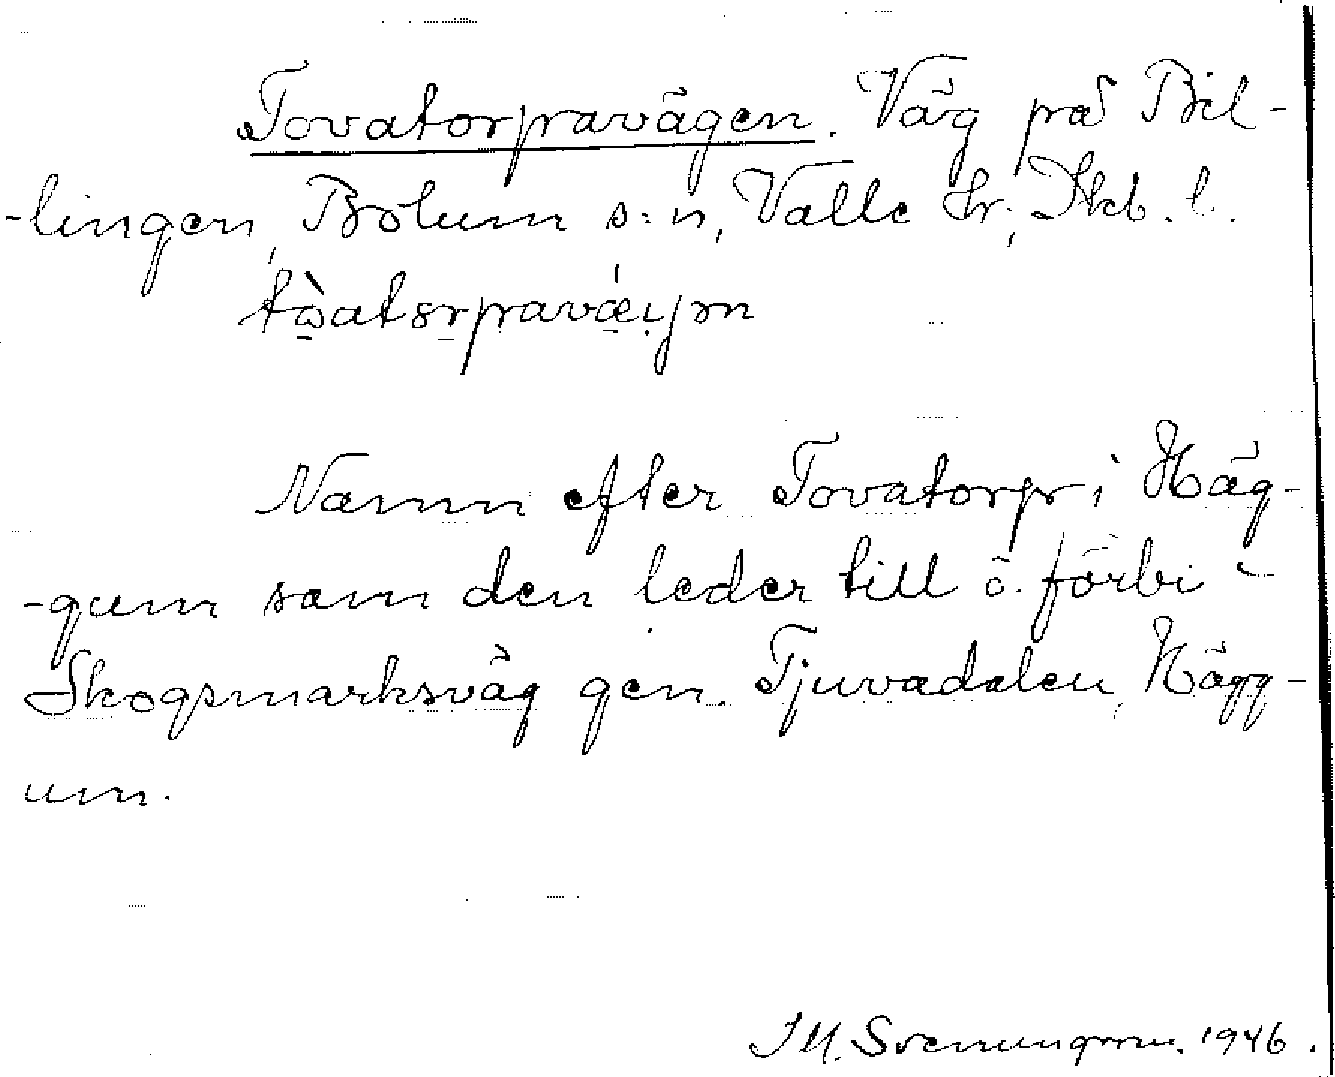 Tovatorpavägen. Väg på Bil-
-lingen, Bolum s:n, Valle hr, Skb. l.
Namn efter Tovatorp i Häg-
-gum som den leder till ö. förbi
Skogsmarksväg gen. Tjuvadalen, Hägg-
um.
J M. Svenungsson. 1946.